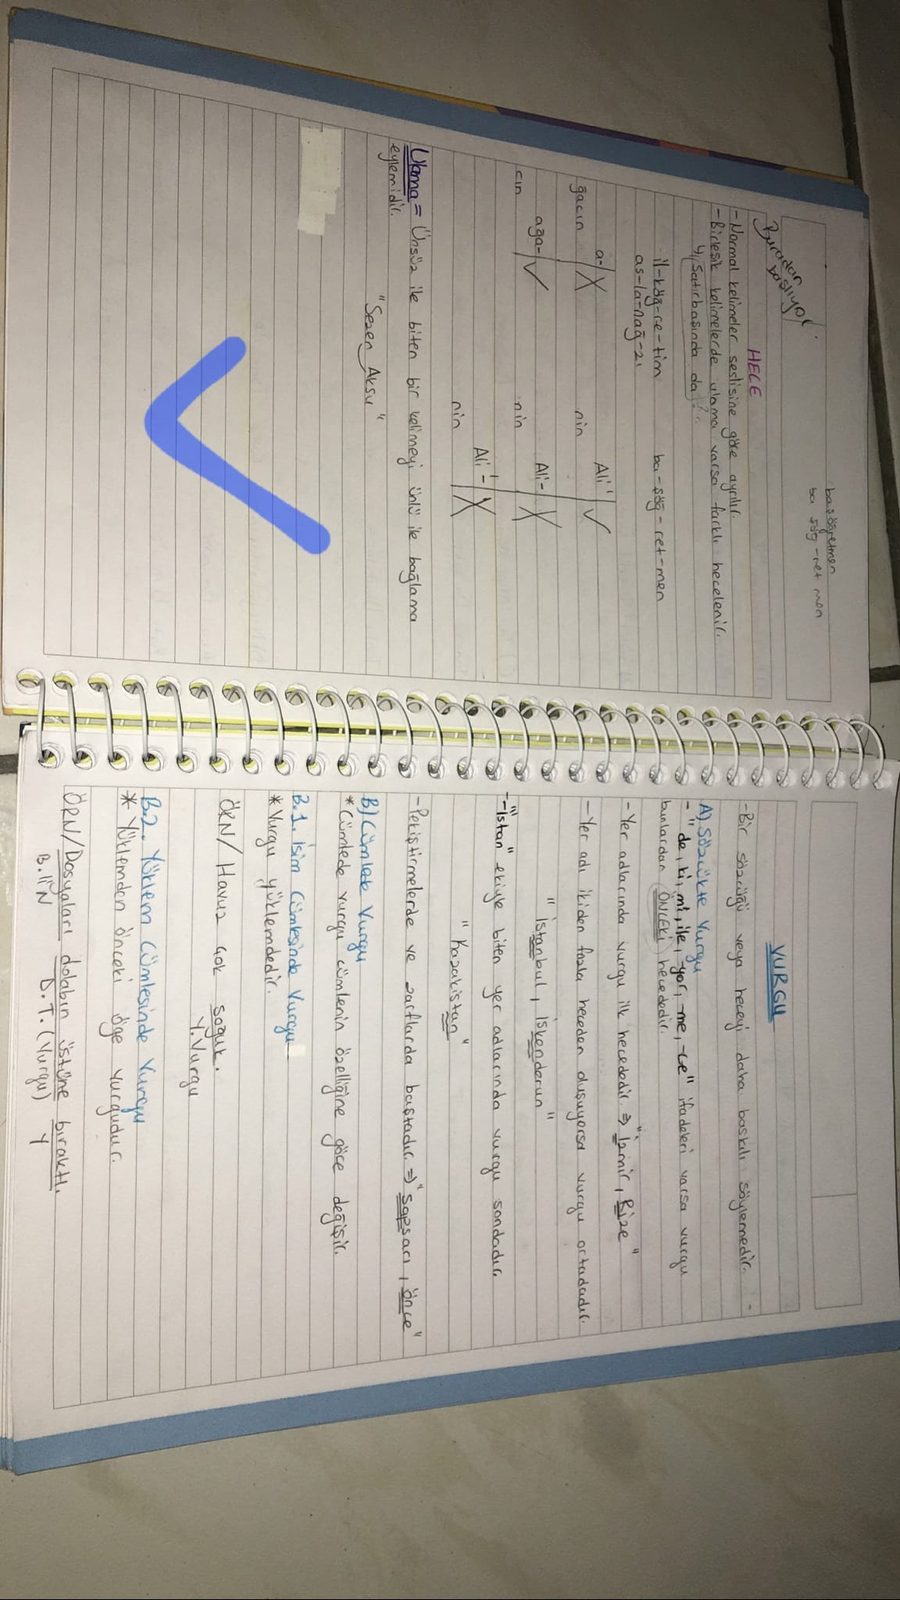 başöğretmen
ba şöğ-ret men
Buradan
başlıyor
HECE
- Normal kelimeler seslisine göre ayrılır.
- Birleşik kelimelerde ulama varsa farklı hecelenir.
Satırbaşında da
il-köğ-re-tim
ba-şöğ-ret-men
as-la-nağ-zı
a-
X
Ali'
✓
ğacın
nin
ağa-
✓
Ali-
X
cın
nin
Ali'-
X
nin
Ulama = Ünsüz ile biten bir kelimeyi ünlü ile bağlama
eylemidir.
"Sezen Aksu"
VURGU
-Bir sözcüğü veya heceyi daha baskılı söylemedir. -
A) Sözcükte Vurgu
- "de, ki, mi, ile, -yor, -me, -ce" ifadeleri varsa vurgu
bunlardan ÖNCEKİ hecededir.
- Yer adlarında vurgu ilk hecededir. ⇒ "İzmir, Rize"
- Yer adı ikiden fazla heceden oluşuyorsa vurgu ortadadır.
"İstanbul, İskenderun"
- "-istan" ekiyle biten yer adlarında vurgu sondadır.
"Kazakistan"
- Pekiştirmelerde ve zarflarda baştadır. ⇒ "sapsarı, önce"
B) Cümlede Vurgu
* Cümlede vurgu cümlenin özelliğine göre değişir.
B.1. İsim Cümlesinde Vurgu
* Vurgu yüklemdedir.
ÖRN/ Havuz çok soğuk.
Y. Vurgu
B.2. Yüklem Cümlesinde Vurgu
* Yüklemden önceki öge vurgudur.
ÖRN/ Dosyaları dolabın üstüne bıraktı.
B.li N D.T. (Vurgu) Y